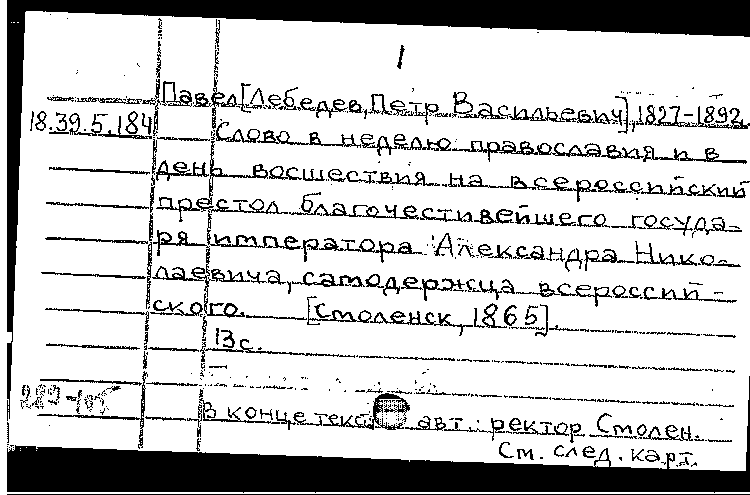 1
Павел [Лебедев, Петр Васильевич], 1827-1892.
18.39.5.184 Слово в неделю православия и в
день восшествия на всероссийский
престол благочестивейшего госуда-
ря императора Александра Нико-
лаевича, самодержца всероссий-
ского. [Смоленск, 1865].
13 с.
289-105
В конце текс авт.: ректор Смолен.
См. след. карт.